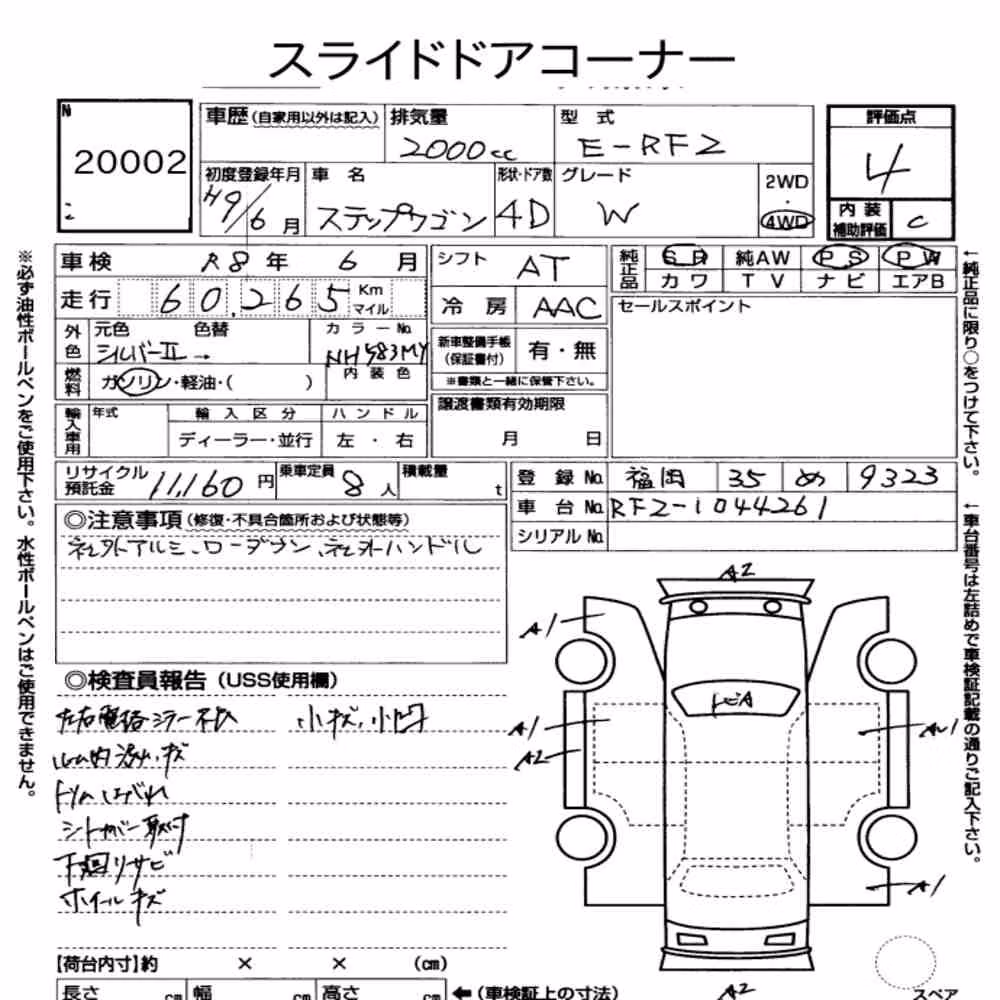 スライドドアコーナー
20002
車歴(自家用以外は記入)
排気量
2000cc
型 式
E-RF2
評価点
4
内装補助評価
C
初度登録年月
H9/6月
車 名
ステップワゴン
形状・ドア数
4D
グレード
W
2WD
・
4WD
車検 R8年 6月
走行 60,265 Km マイル
外色
元色
シルバーII→
色替
カラーNo.
NH583MY
燃料
ガソリン・軽油・( )
内装色
輸入車用
年式
輸入区分
ディーラー・並行
ハンドル
左・右
シフト
AT
冷房
AAC
新車整備手帳(保証書付)
有・無
※書類と一緒に保管下さい。
譲渡書類有効期限
月 日
純正品
SR 純AW PS PW
カワ TV ナビ エアB
セールスポイント
リサイクル預託金
11,160円
乗車定員
8人
積載量
t
登録No. 福岡 35 め 9323
車台No. RF2-1044261
シリアルNo.
◎注意事項(修復・不具合箇所および状態等)
社外アルミ、ローダウン、社外ハンドル
◎検査員報告(USS使用欄)
小キズ、小凹
ルーム内
シートカバー取付
下廻りサビ
ホイールキズ
【荷台内寸】約 × × (cm)
長さ cm 幅 cm 高さ cm
←(車検証上の寸法)
A2
A1
A1
A2
A1
A2
スペア
※必ず油性ボールペンをご使用下さい。水性ボールペンはご使用できません。
←純正品に限り○をつけて下さい。
←車台番号は左詰めで車検証記載の通りご記入下さい。